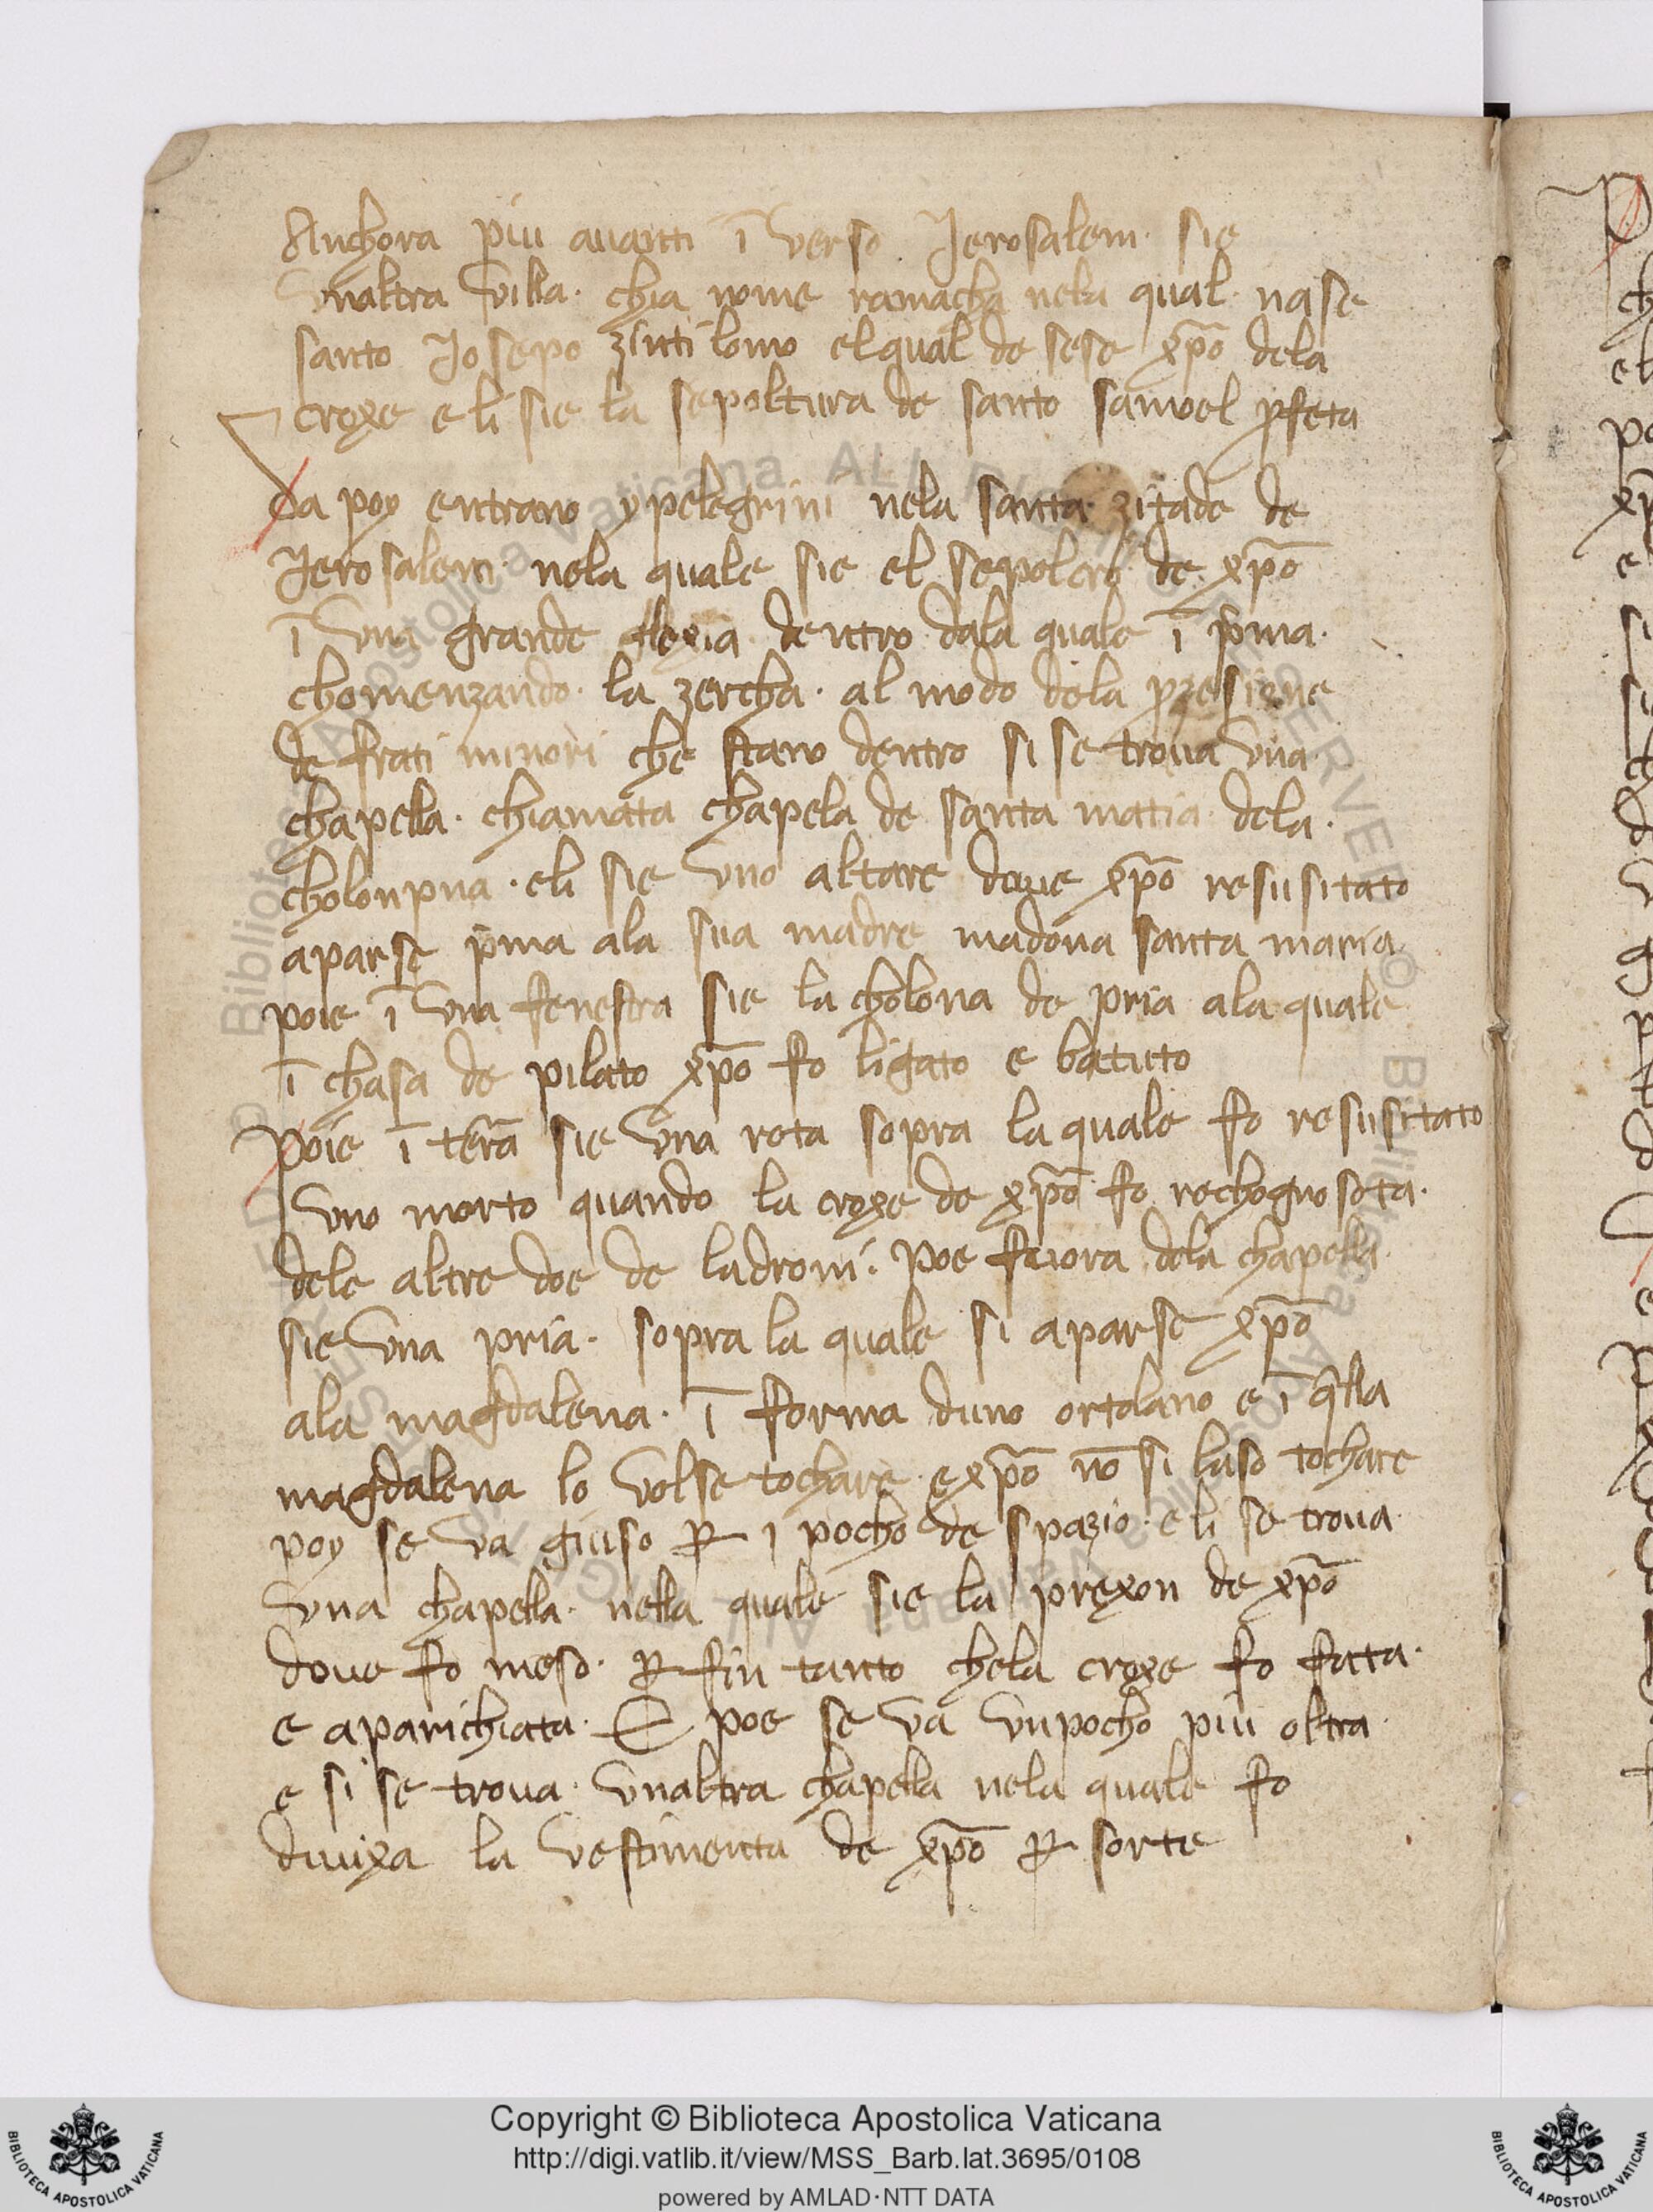 Anchora piu auanti ī verso Jerosalem · sie
vnaltra villa · chia nome ramacha nela qual · nase
santo Josepo zintilomo elqual de sese xp̄o dela
croxe e li sie la sepoltura de santo samuel ꝓfeta
Da poy entrano y pelegrini nela santa · zitade de
Jerosalem · nela quale sie el sepolcro de xp̄o
ī vna grande glexia dentro dala quale ī p̄ma ·
chomenzando · la zercha · al modo dela ꝓzesione
de frati minori che stano dentro si se troua vna
chapella · chiamata chapela de santa maria dela ·
cholonpna · eli sie vno altare doue xp̄o resusitato
aparse p̄ma ala sua madre madona santa maria
poie ī vna fenestra sie la cholona de pria ala quale
ī chasa de pilato xp̄o fo ligato e batuto
Poie ī terā sie vna rota sopra la quale fo resusitato
vno morto quando la croxe de xp̄o fo rechognoseta ·
dele altre doe de ladroni · Poe fuora dela chapella
sie vna pria · sopra la quale si aparse xp̄o
ala magdalena · ī forma duno ortolano e ī q̄lla
magdalena lo volse tochare · e xp̄o nō si laso tochare
poy se va giuso ꝑ i pocho de spazio · eli se troua
vna chapella · nella quale sie la prexon de xp̄o
doue fo meso · ꝑ fin tanto chela croxe fo fatta ·
e aparichiata · E poe se va vn pocho piu oltra
e si se troua · vnaltra chapella nela quale fo
diuixa la vestimenta de xp̄o ꝑ sorte
Copyright © Biblioteca Apostolica Vaticana
http://digi.vatlib.it/view/MSS_Barb.lat.3695/0108
powered by AMLAD·NTT DATA